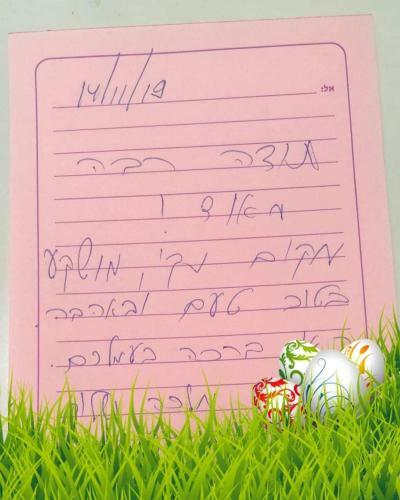 14/11/19
אל:
תודה רבה
מאוד !
מקום נקי, מושקע
בטוב טעם ובאהבה
ברכה בעמלכם.